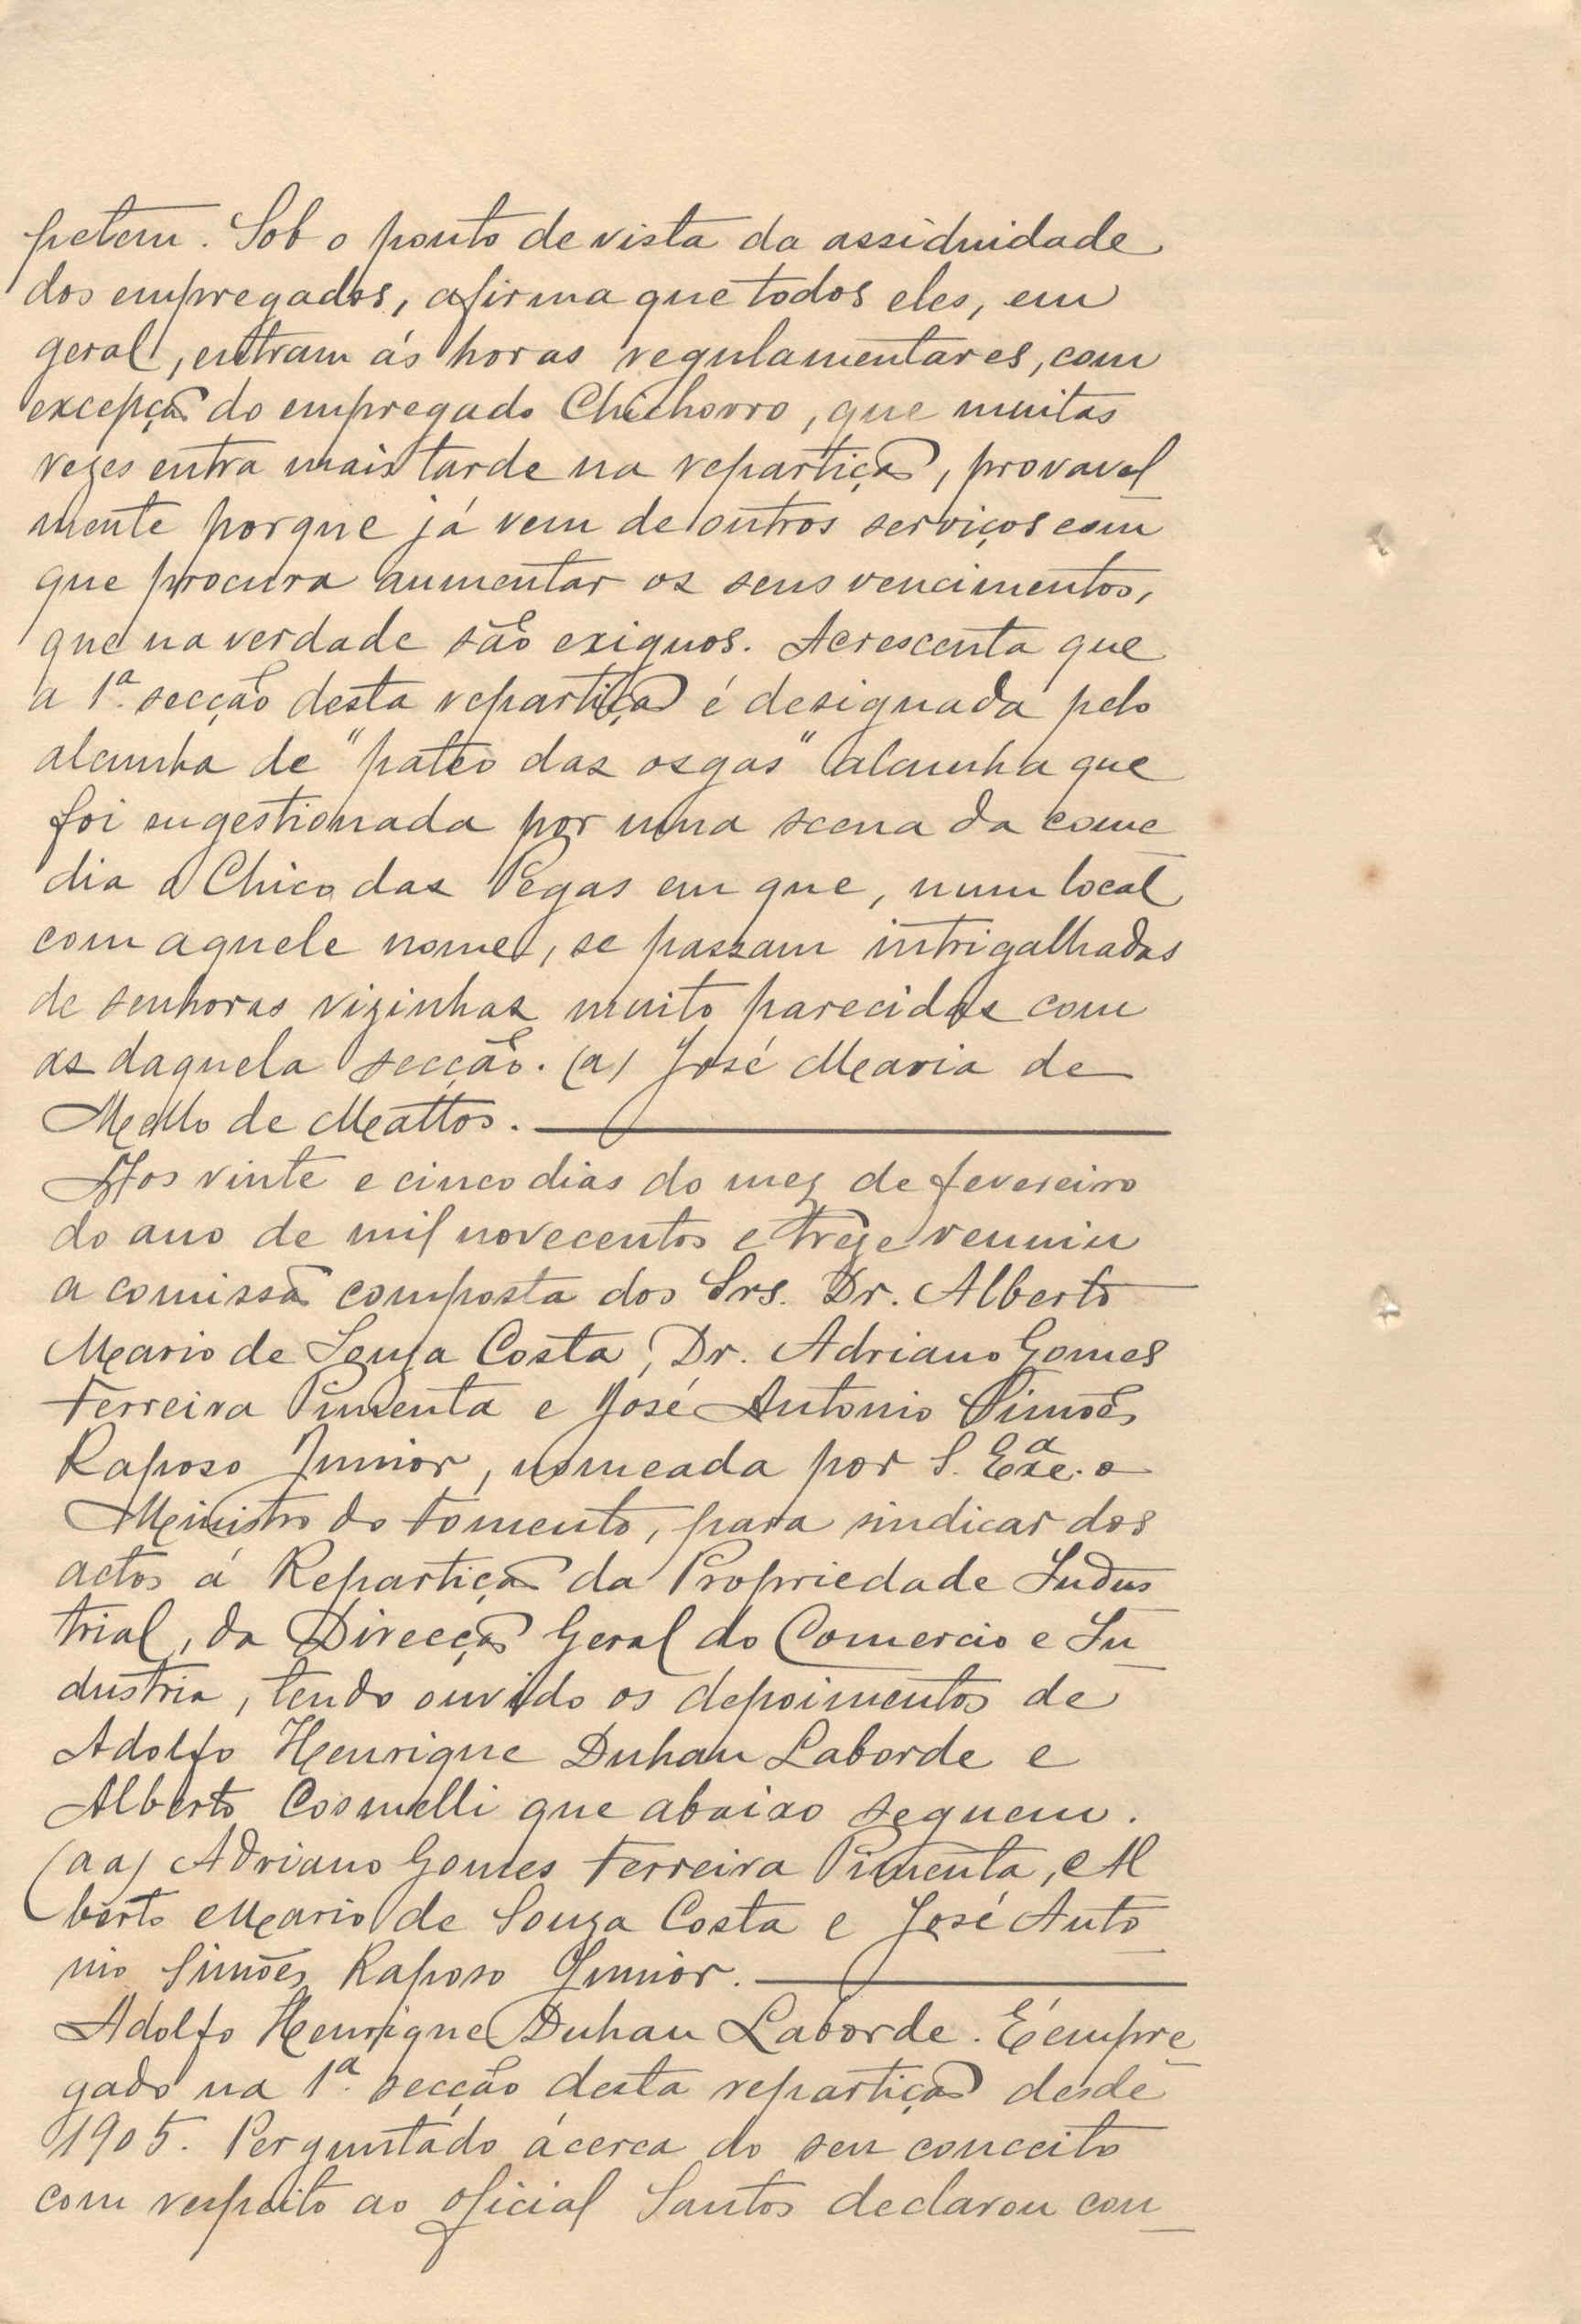 petem. Sob o ponto de vista da assiduidade
dos empregados, afirma que todos eles, em
geral, entram ás horas regulamentares, com
excepção do empregado Chichorro, que muitas
vezes entra mais tarde na repartição, provavel
mente porque já vem de outros serviços com
que procura aumentar os seus vencimentos,
que na verdade são exiguos. Acrescenta que
a 1ª. secção desta repartição é designada pelo
alcunha de "pateo das osgas" alcunha que
foi sugestionada por uma scena da come
dia o Chico das Pegas em que, num local
com aquele nome, se passam intrigalhadas
de senhoras vizinhas muito parecidas com
as daquela secção. (a) José Maria de
Mello de Mattos.
Aos vinte e cinco dias do mez de fevereiro
do ano de mil novecentos e treze reuniu
a comissão composta dos Srs. Dr. Alberto
Mario de Souza Costa, Dr. Adriano Gomes
Ferreira Pimenta e José Antonio Simões
Raposo Junior, nomeada por S. Exc.ª o
Ministro do Fomento, para sindicar dos
actos á Repartição da Propriedade Indus
trial, da Direcção Geral do Comercio e In
dustria, tendo ouvido os depoimentos de
Adolfo Henrique Duhau Laborde e
Alberto Cosmelli que abaixo seguem.
(aa) Adriano Gomes Ferreira Pimenta, Al
berto Mario de Souza Costa e José Anto
nio Simões Raposo Junior.
Adolfo Henrique Duhau Laborde. É empre
gado na 1ª. secção desta repartição desde
1905. Perguntado ácerca do seu conceito
com respeito ao oficial Santos declarou con